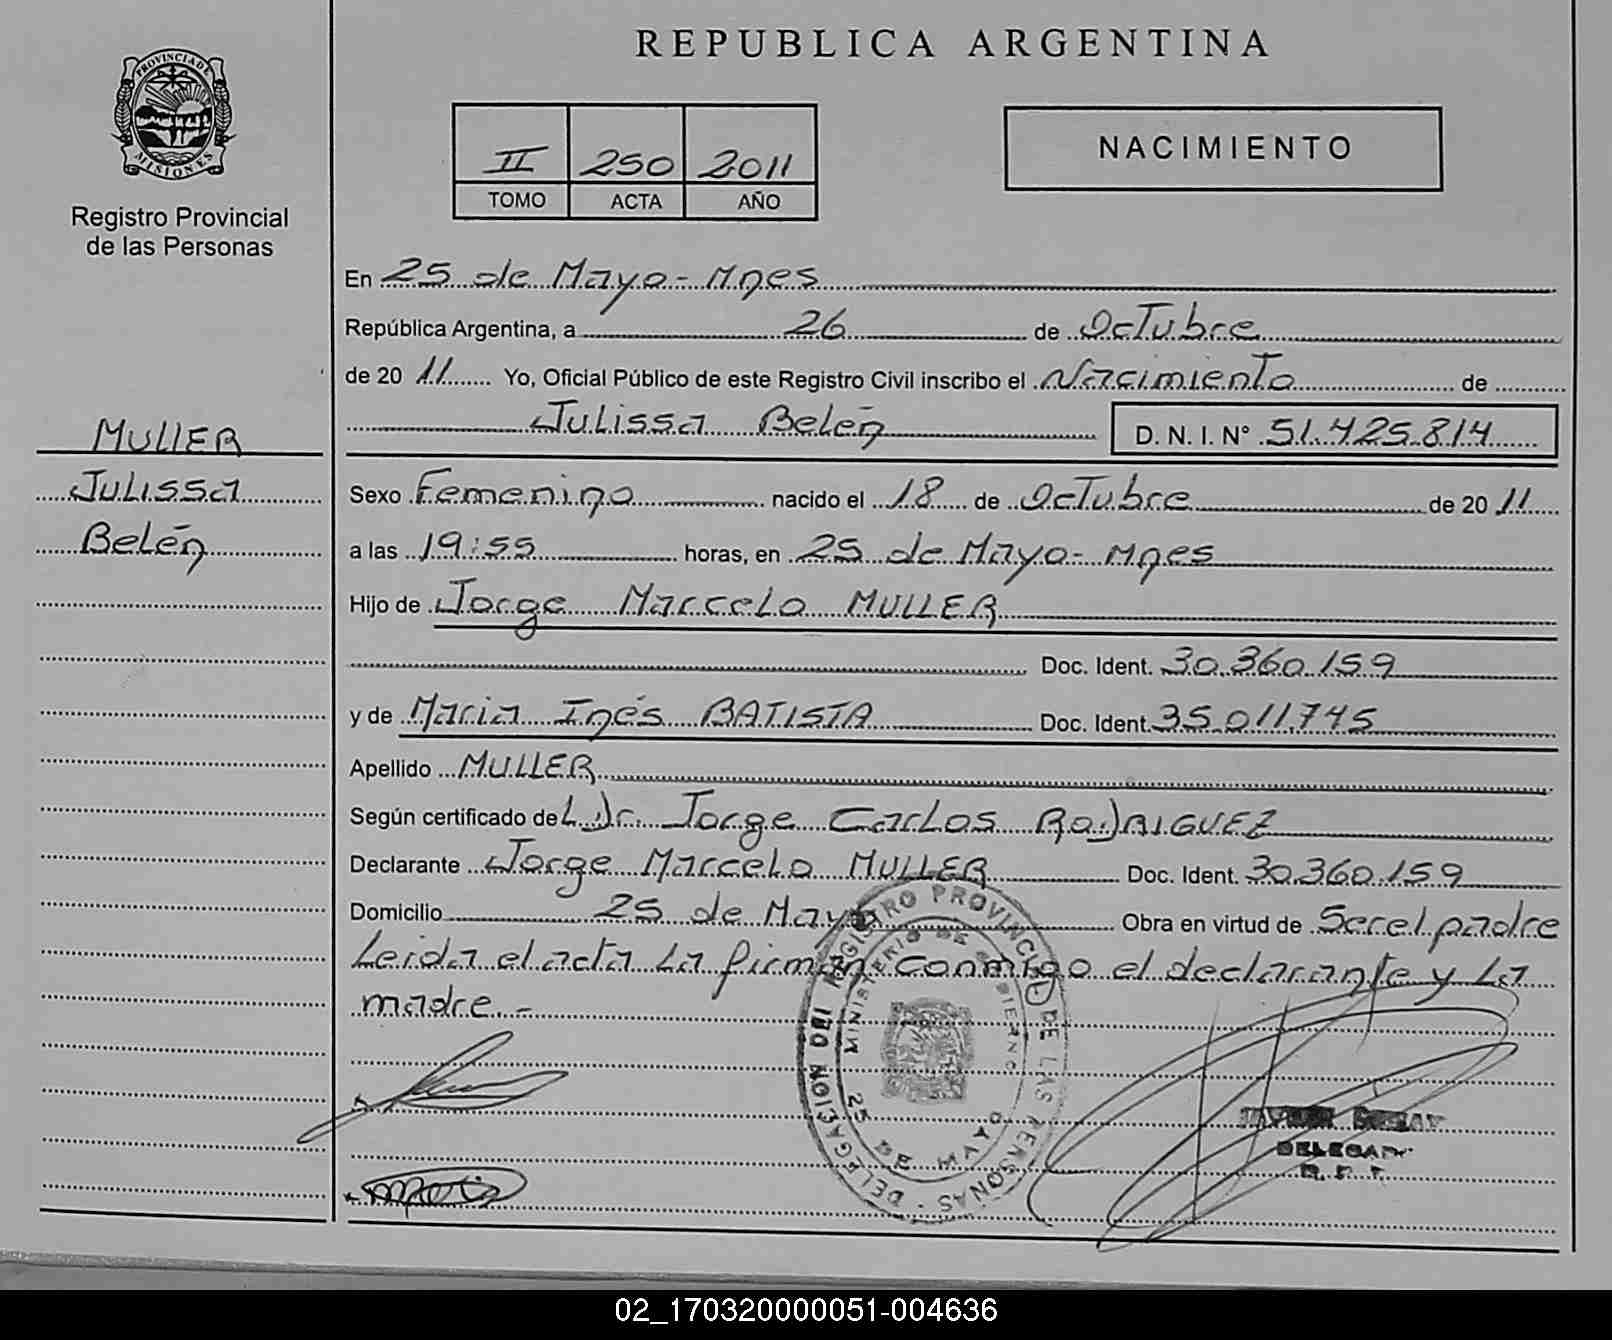 REPUBLICA ARGENTINA
PROVINCIA DE
MISIONES
Registro Provincial
de las Personas
II 250 2011
TOMO ACTA AÑO
NACIMIENTO
MULLER
Julissa
Belén
En 25 de Mayo - Mnes
República Argentina, a 26 de Octubre
de 20 11 Yo, Oficial Público de este Registro Civil inscribo el Nacimiento de
Julissa Belén D. N. I. N° 51.425.814
Sexo Femenino nacido el 18 de Octubre de 20 11
a las 19:55 horas, en 25 de Mayo - Mnes
Hijo de Jorge Marcelo MULLER
Doc. Ident. 30.360.159
y de Maria Inés BATISTA Doc. Ident. 35.011.745
Apellido MULLER
Según certificado del Dr. Jorge Carlos RODRIGUEZ
Declarante Jorge Marcelo MULLER Doc. Ident. 30.360.159
Domicilio 25 de Mayo Obra en virtud de Ser el padre
Leida el acta la firman conmigo el declarante y la
madre. -
DELEGACION DEL REGISTRO PROVINCIAL DE LAS PERSONAS
MINISTERIO DE GOBIERNO
25 DE MAYO
DELEGADO
02_170320000051-004636